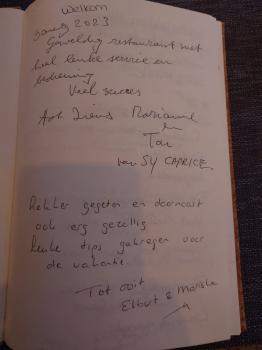 Welkom
2023
Geweldig restaurant met
heel leuke service en
bediening
Veel succes
Marianne
en
Ton
van SY CAPRICE
Lekker gegeten en daarnaast
ook erg gezellig
Leuke tips gekregen voor
de vakantie.
Tot ooit
Elbert & Mariska